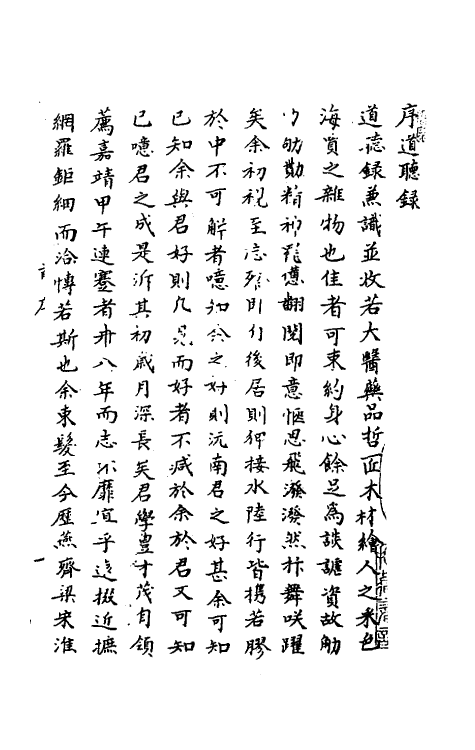 序道聽錄
道聽錄兼識並收若大醫藥品哲匠木材繪人之采色
海賈之雜物也佳者可束約身心餘足為談謔資故觔
以劬勩精神罷憊翻閱即意愜思飛潑潑然抃舞咲躍
矣余初視至忘後居則狎接水陸行皆携若膠
於中不可解者噫知余之好則沅南君之好甚余可知
已知余與君好則凡見而好者不减於余於君又可知
已噫君之成是泝其初歲月深長矣君學豊才茂自領
薦嘉靖甲午連蹇者卅八年而志不靡宜乎遠掇近摭
網羅鉅細而洽慱若斯也余束髮至今歷燕齊梁宋淮
一